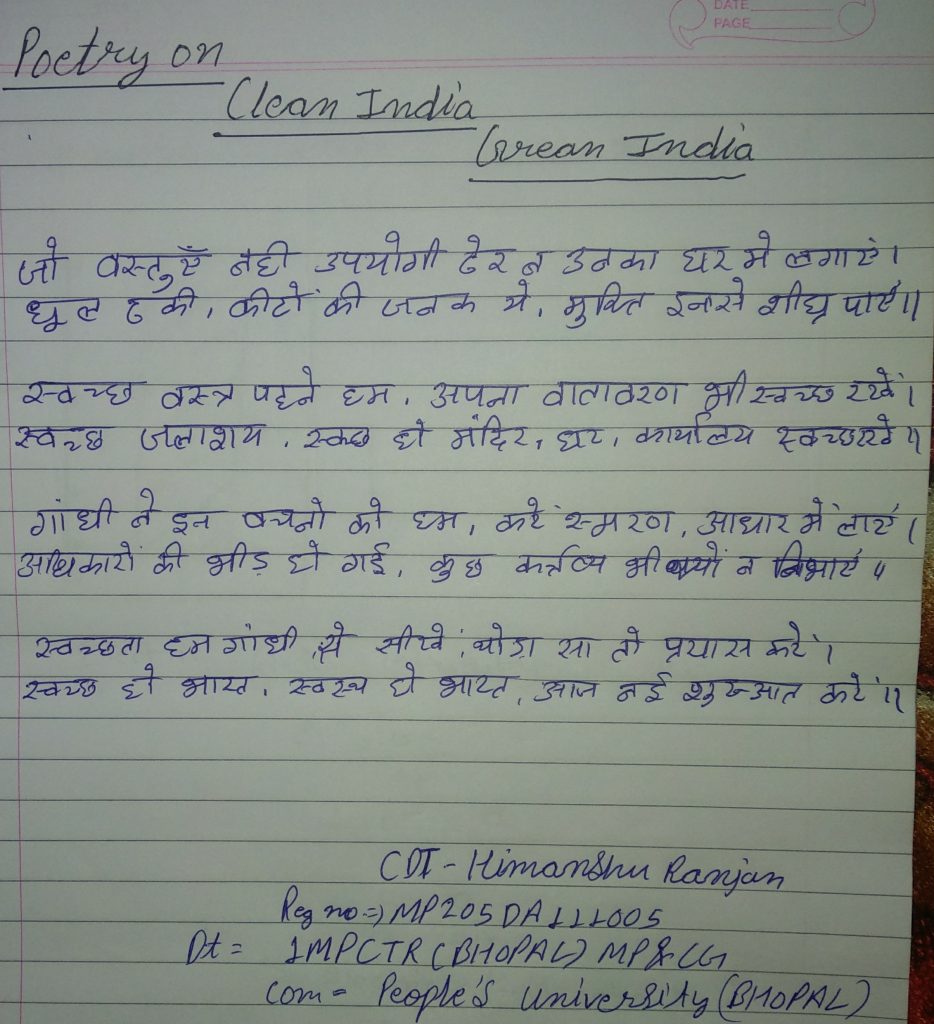 DATE
PAGE
Poetry on
Clean India
Grean India
जो वस्तुएँ नही उपयोगी ढेर न उनका घर मे लगाएं।
धूल ढकी, कीटों की जनक ये, मुक्ति इनसे शीघ्र पाएं॥
स्वच्छ वस्त्र पहने हम, अपना वातावरण भी स्वच्छ रखें।
स्वच्छ जलाशय, स्वच्छ हो मंदिर, घर, कार्यालय स्वच्छ रखे॥
गांधी ने इन वचनो को हम, करें स्मरण, आधार में लाएं।
अधिकारों की भीड़ हो गई, कुछ कर्त्तव्य भी क्यों न निभाएं॥
स्वच्छता हम गांधी से सीखें, थोड़ा सा तो प्रयास करें।
स्वच्छ हो भारत, स्वस्थ हो भारत, आज नई शुरुआत करें॥
CDT - Himanshu Ranjan
Reg no => MP20SDA111005
Dt = 1MPCTR (BHOPAL) MP&CG
Com = People's University (BHOPAL)